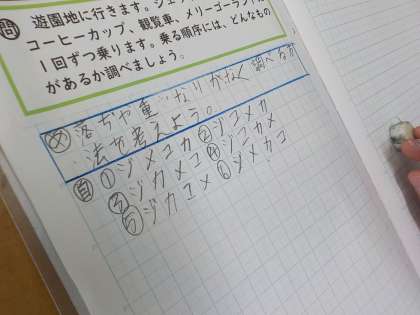 問 遊園地に行きます。ジェッ
コーヒーカップ、観覧車、メリーゴーラン
1回ずつ乗ります。乗る順序には、どんなもの
があるか調べましょう。
め 落ちや重なりがなく調べる方
法を考えよう。
自 ①ジメコカ ②ジコメカ
③ジカメコ ④ジコカメ
⑤ジカコメ ⑥ジメカコ